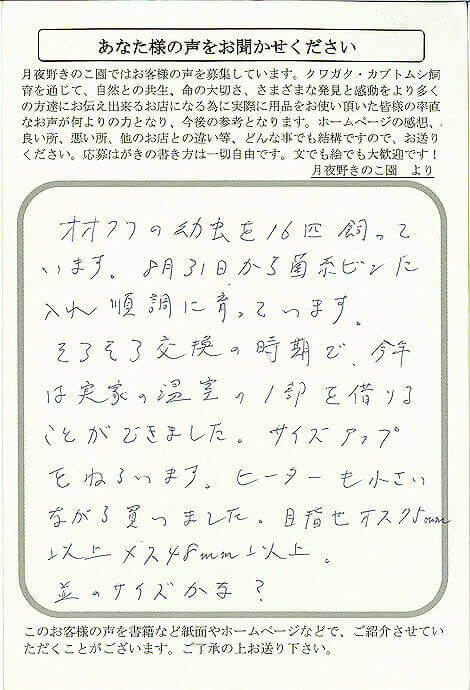 あなた様の声をお聞かせください
月夜野きのこ園ではお客様の声を募集しています。クワガタ・カブトムシ飼
育を通じて、自然との共生、命の大切さ、さまざまな発見と感動をより多く
の方達にお伝え出来るお店になる為に実際に用品をお使い頂いた皆様の率直
なお声が何よりの力となり、今後の参考となります。ホームページの感想、
良い所、悪い所、他のお店との違い等、どんな事でも結構ですので、お送り
ください。応募はがきの書き方は一切自由です。文でも絵でも大歓迎です！
月夜野きのこ園　より
オオクワの幼虫を16匹飼って
います。8月31日から菌糸ビンに
入れ順調に育っています。
そろそろ交換の時期で、今年
は実家の温室の1部を借りる
ことができました。サイズアップ
をねらいます。ヒーターも小さい
ながら買いました。目指せオス75mm
以上メス48mm以上。
並のサイズかな？
このお客様の声を書籍など紙面やホームページなどで、ご紹介させてい
ただくことがございます。ご了承の上お送り下さい。